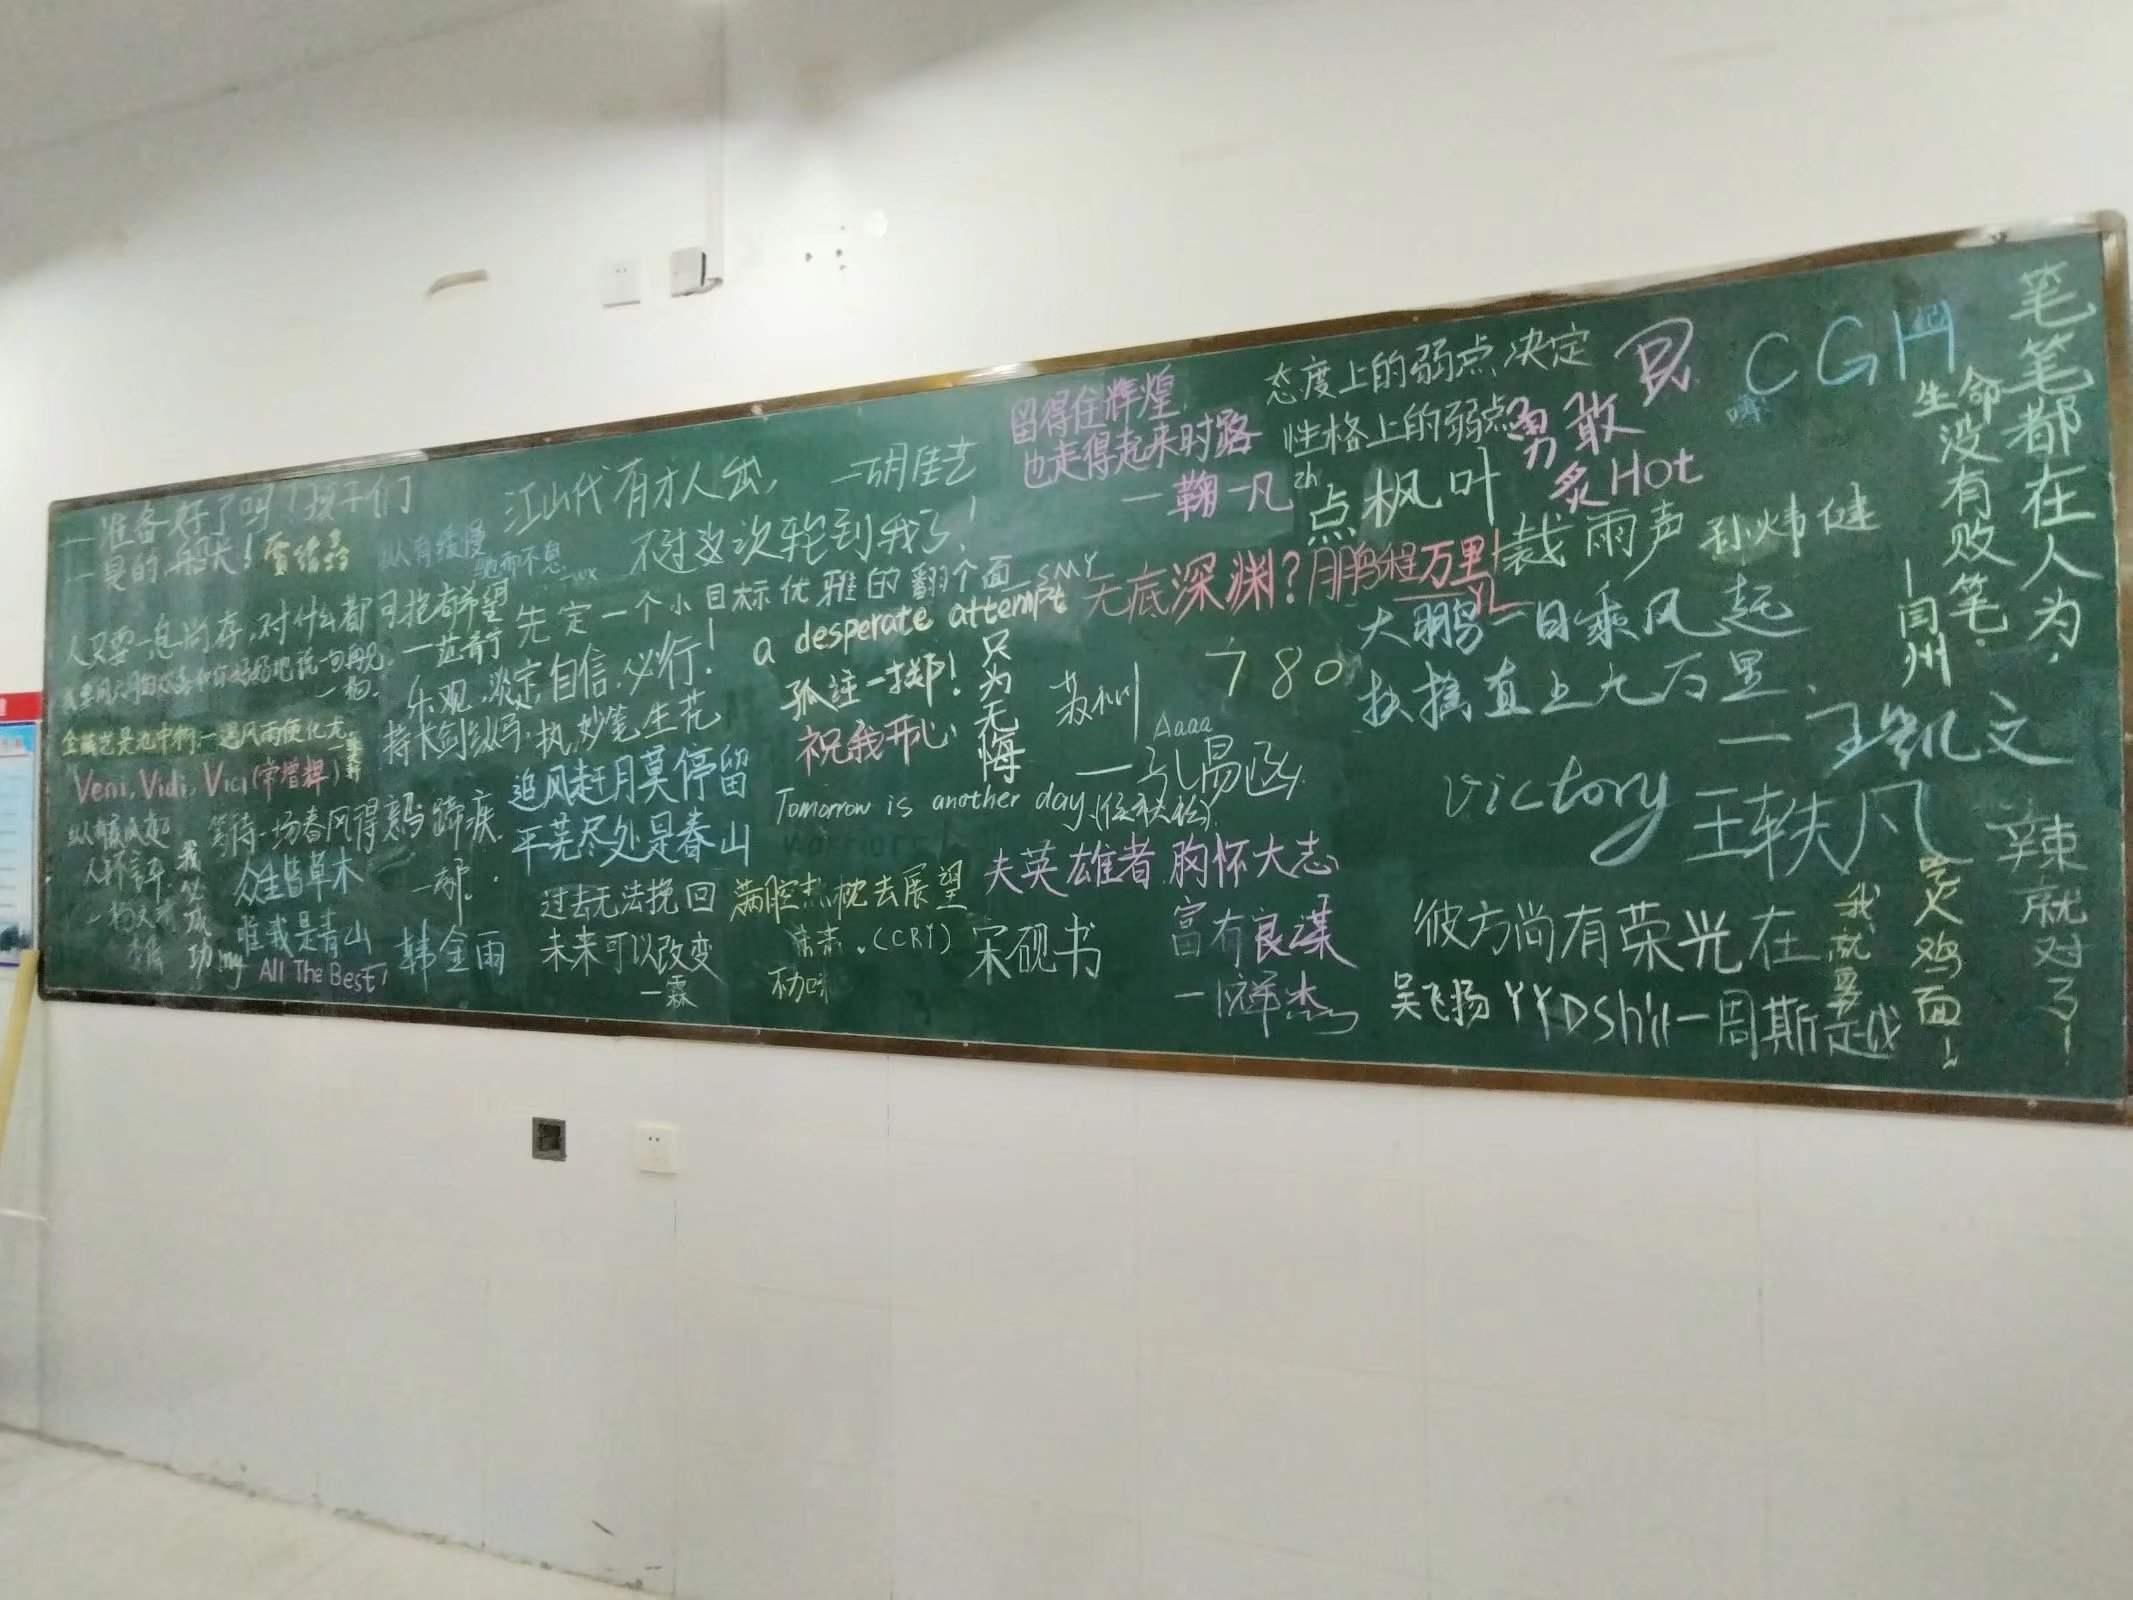 一准备好了吗！孩子们
一是的，船长！
纵有缓慢
驰而不息
wx
江山代有才人出，
不过这次轮到我了！
一胡佳艺
留得住辉煌
也走得起来时路
一鞠一凡
态度上的弱点决定
性格上的弱点
勇敢
炙Hot
CGH
点枫叶
裁雨声
孙炜健
笔笔都在人为，
生命没有败笔.
一闫州
人只要一息尚存，对什么都可抱有希望
一范俞
先定一个小目标优雅的翻个面
SMY
无底深渊？鹏程万里！
YL
乐观，淡定，自信，必行！
持长剑纵马，执妙笔生花
a desperate attempt
孤注一掷！
只为无悔
祝我开心
苏州
780
Aaaa
大鹏一日乘风起
扶摇直上九万里.
一王凯文
金鳞岂是池中物，一遇风雨便化龙
Veni, Vidi, Vici(常增辉)
等待一场春风得意马蹄疾.
追风赶月莫停留
平芜尽处是春山
Tomorrow is another day
Victory
王轶凡
众生皆草木
唯我是青山
my
All The Best!
韩金雨
过去无法挽回
未来可以改变
一霖
满腔热枕去展望
未来.(CRY)
warriors
夫英雄者胸怀大志
富有良谋
宋砚书
彼方尚有荣光在
吴飞扬YYDShit一周斯越
我就要
炙火鸡面！
辣就对了！